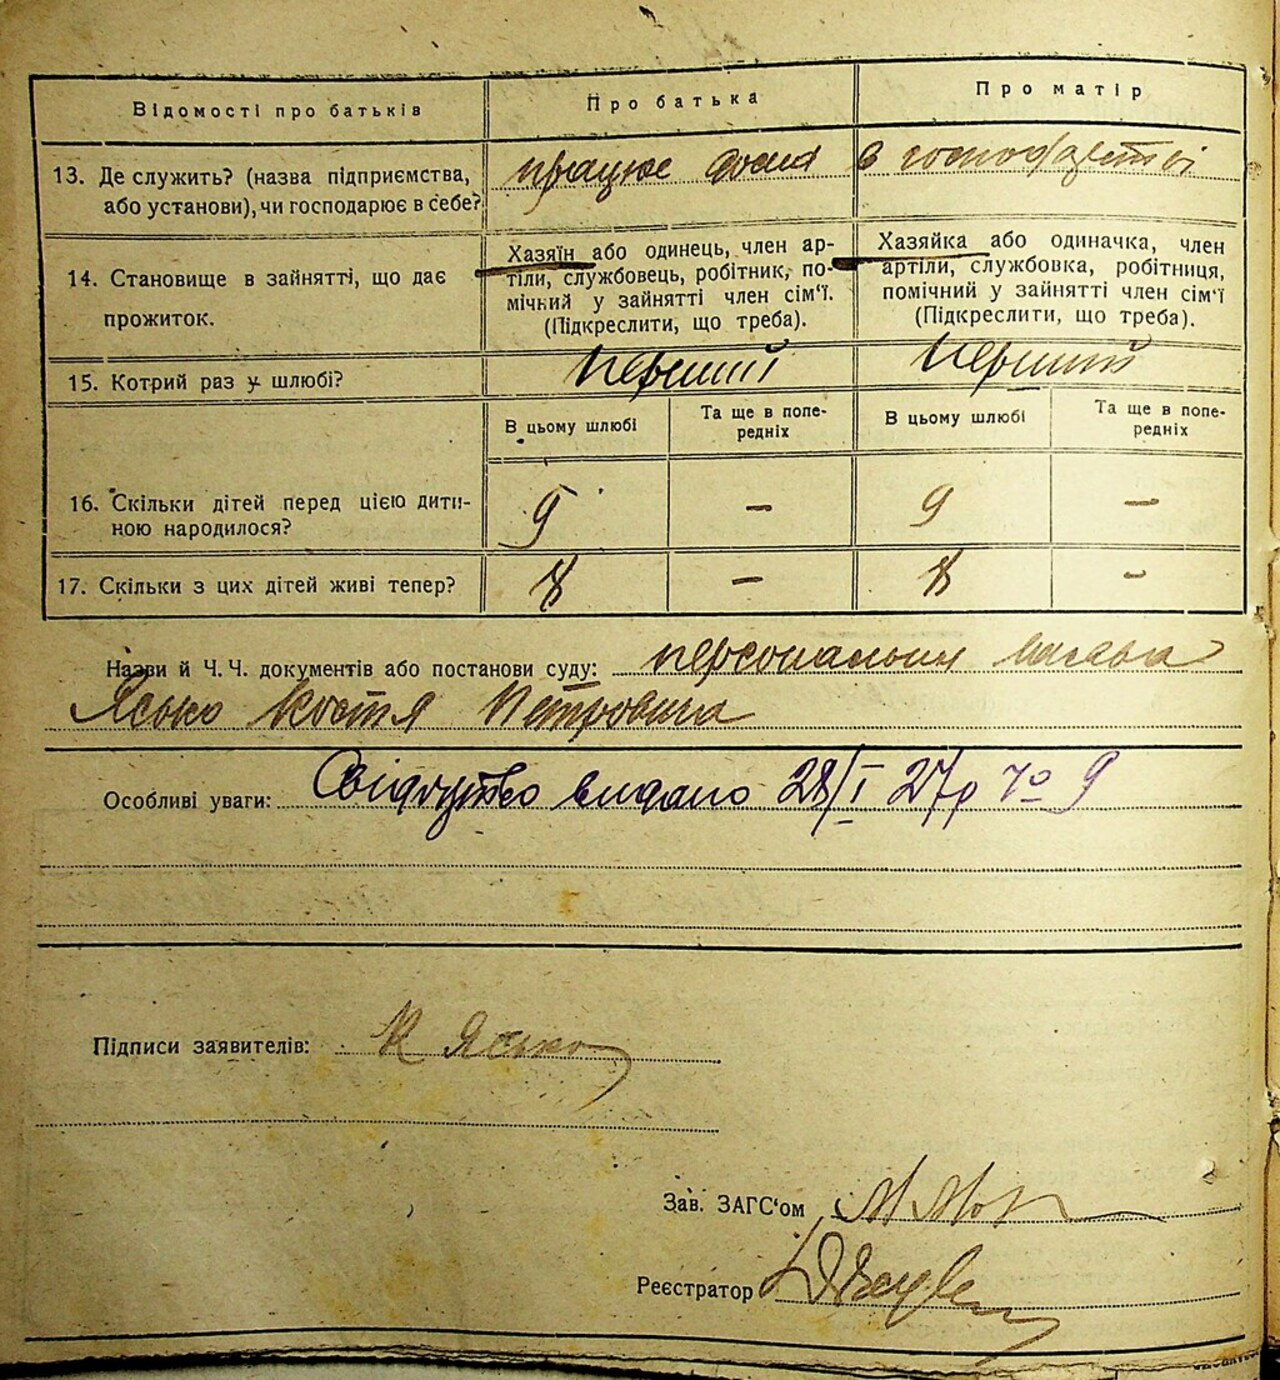 Відомості про батьків
Про батька
Про матір
13. Де служить? (назва підприємства,
або установи), чи господарює в себе?
працює дома в господарстві
14. Становище в зайнятті, що дає
прожиток.
Хазяїн або одинець, член ар-
тіли, службовець, робітник, по-
мічний у зайнятті член сім'ї.
(Підкреслити, що треба).
Хазяйка або одиначка, член
артіли, службовка, робітниця,
помічний у зайнятті член сім'ї
(Підкреслити, що треба).
15. Котрий раз у шлюбі?
перший
перший
В цьому шлюбі
Та ще в попе-
редніх
В цьому шлюбі
Та ще в попе-
редніх
16. Скільки дітей перед цією дити-
ною народилося?
9
–
9
–
17. Скільки з цих дітей живі тепер?
8
–
8
–
Назви й Ч. Ч. документів або постанови суду: персональна
Ясько Костя Петровича
Особливі уваги: Свідоцтво видано 28/I 27р 9
Підписи заявителів: К Ясько
Зав. ЗАГС'ом
Реєстратор